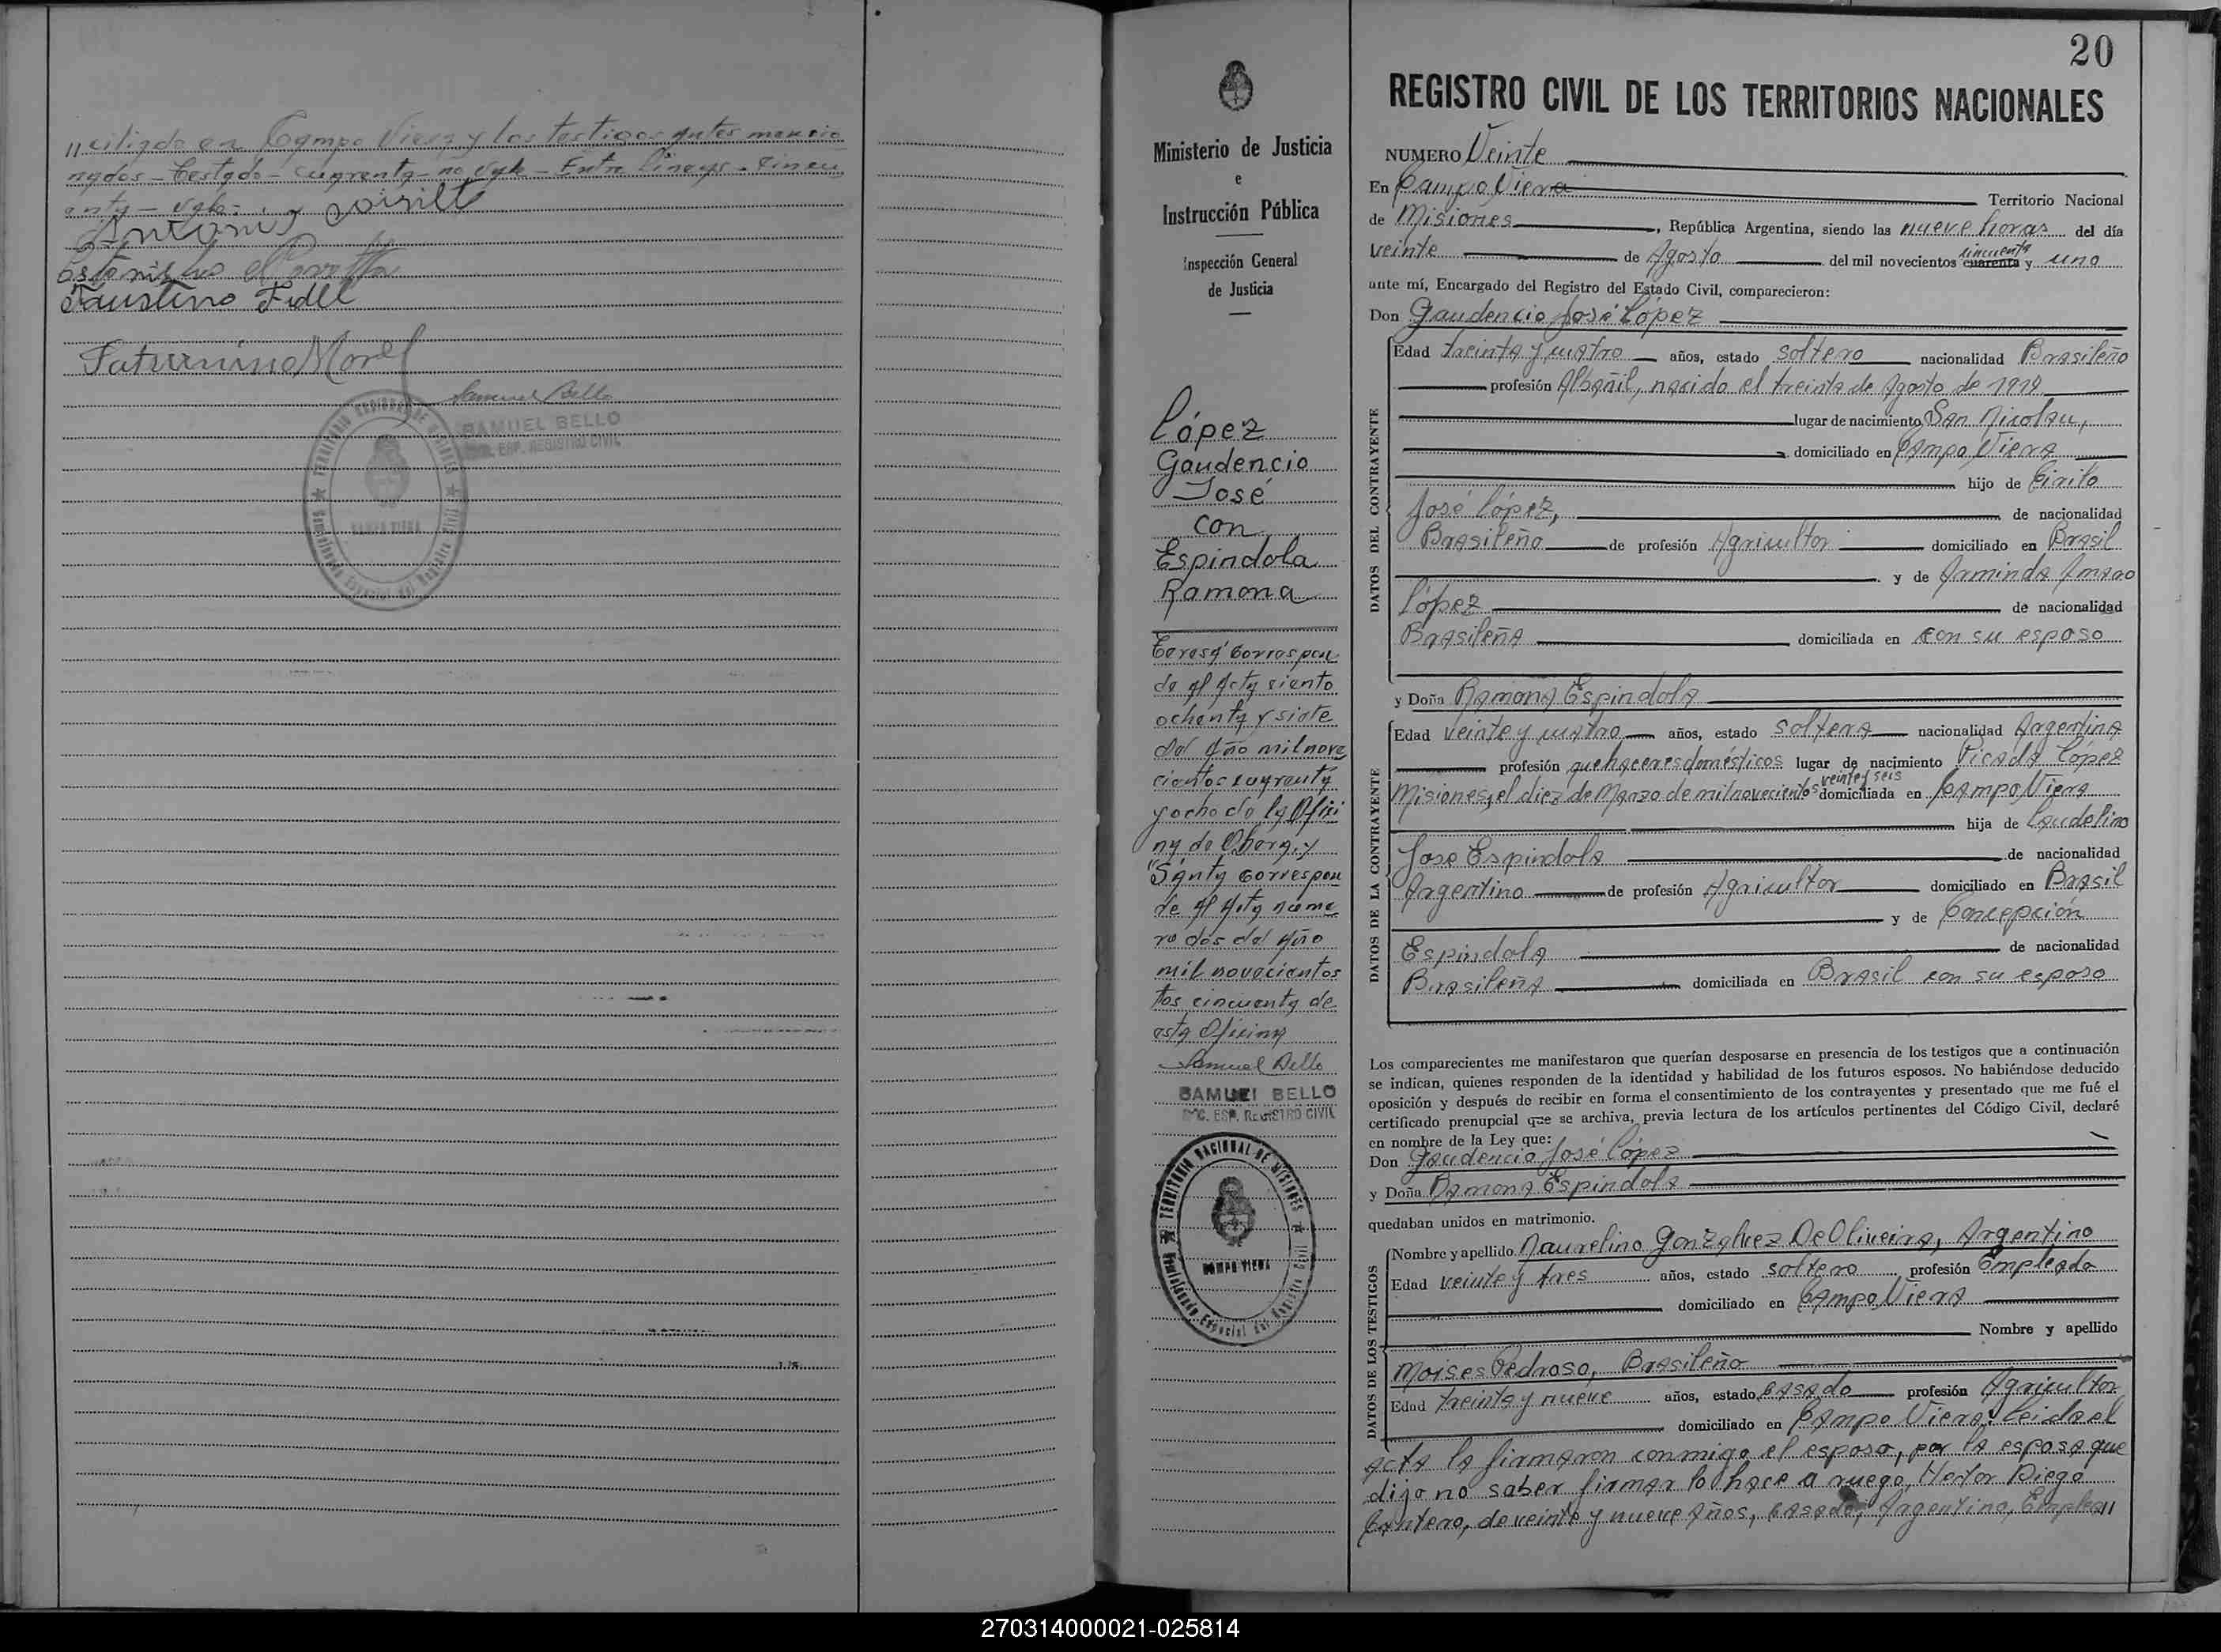 "ciliado en Campo Viera y los testigos antes mencio
nados - Testado - cuarenta - no vale - Entre lineas - cincu
enta - vale.
Estanislao
Faustino Fidel
Saturnino Morel
Samuel Bello
SAMUEL BELLO
ENC. ESP. REGISTRO CIVIL
TERRITORIO NACIONAL DE MISIONES
CAMPO VIERA
Comisionado Especial del Registro Civil
20
Ministerio de Justicia
e
Instrucción Pública
Inspección General
de Justicia
López
Gaudencio
José
con
Espindola
Ramona
Teresa correspon
de al Acta ciento
ochenta y siete
del Año mil nove
cientos cuarenta
y ocho de la Ofici
na de Oberá, y
"Santa correspon
de al Acta núme
ro dos del Año
mil novecientos
tos cincuenta de
esta Oficina
Samuel Bello
SAMUEL BELLO
ENC. ESP. REGISTRO CIVIL
TERRITORIO NACIONAL DE MISIONES
CAMPO VIERA
Comisionado Especial del Registro Civil
REGISTRO CIVIL DE LOS TERRITORIOS NACIONALES
NUMERO Veinte
En Campo Viera Territorio Nacional
de Misiones, República Argentina, siendo las nueve horas del día
veinte de Agosto del mil novecientos cuarenta cincuenta y uno
ante mí, Encargado del Registro del Estado Civil, comparecieron:
Don Gaudencio José López
DATOS DEL CONTRAYENTE
Edad treinta y cuatro años, estado soltero nacionalidad Brasileño
profesión Albañil, nacido el treinta de Agosto de 1919
lugar de nacimiento San Nicolau,
domiciliado en Campo Viera
hijo de Cirilo
José López, de nacionalidad
Brasileño de profesión Agricultor domiciliado en Brasil
y de Arminda Amaro
López de nacionalidad
Brasileña domiciliada en con su esposo
y Doña Ramona Espindola
DATOS DE LA CONTRAYENTE
Edad veinte y cuatro años, estado soltera nacionalidad Argentina
profesión quehaceres domésticos lugar de nacimiento Picada López
Misiones, el diez de Marzo de mil novecientos veinte y seis domiciliada en Campo Viera
hija de Laudelino
José Espindola de nacionalidad
Argentino de profesión Agricultor domiciliado en Brasil
y de Concepción
Espindola de nacionalidad
Brasileña domiciliada en Brasil con su esposo
Los comparecientes me manifestaron que querían desposarse en presencia de los testigos que a continuación
se indican, quienes responden de la identidad y habilidad de los futuros esposos. No habiéndose deducido
oposición y después de recibir en forma el consentimiento de los contrayentes y presentado que me fué el
certificado prenupcial que se archiva, previa lectura de los artículos pertinentes del Código Civil, declaré
en nombre de la Ley que:
Don Gaudencio José López
y Doña Ramona Espindola
quedaban unidos en matrimonio.
DATOS DE LOS TESTIGOS
Nombre y apellido Maurelino Gonzalvez De Oliveira, Argentino
Edad veinte y tres años, estado soltero profesión Empleado
domiciliado en Campo Viera
Nombre y apellido
Moises Pedroso, Brasileño
Edad treinta y nueve años, estado casado profesión Agricultor
domiciliado en Campo Viera. Leida el
acta la firmaron conmigo el esposo, por la esposa que
dijo no saber firmar lo hace a ruego, Hector Diego
Cantero, de veinte y nueve Años, casado, Argentino, Emplea"
270314000021-025814